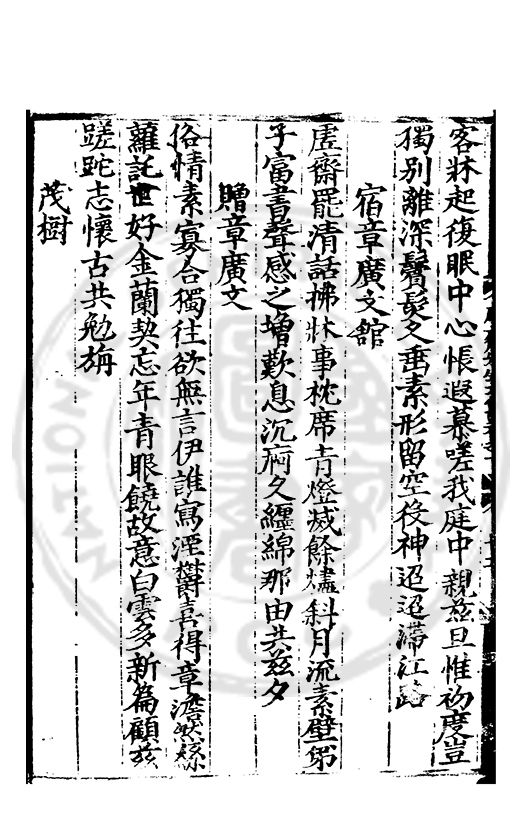 客牀起復眠中心悵遐慕嗟我庭中親茲旦惟初度豈
獨别離深鬢髮久垂素形留空後神迢迢滯江路
宿章廣文舘
虛齋罷清話拂牀事枕席青燈滅餘燼斜月流素壁弟
子富書聲感之增歎息沉痾久纏綿那由共茲夕
贈章廣文
俗情素寡合獨往欲無言伊誰寫湮欝喜得章澹然絲
蘿託世好金蘭契忘年青眼饒故意白雲多新篇顧茲
蹉跎志懷古共勉旃
茂樹